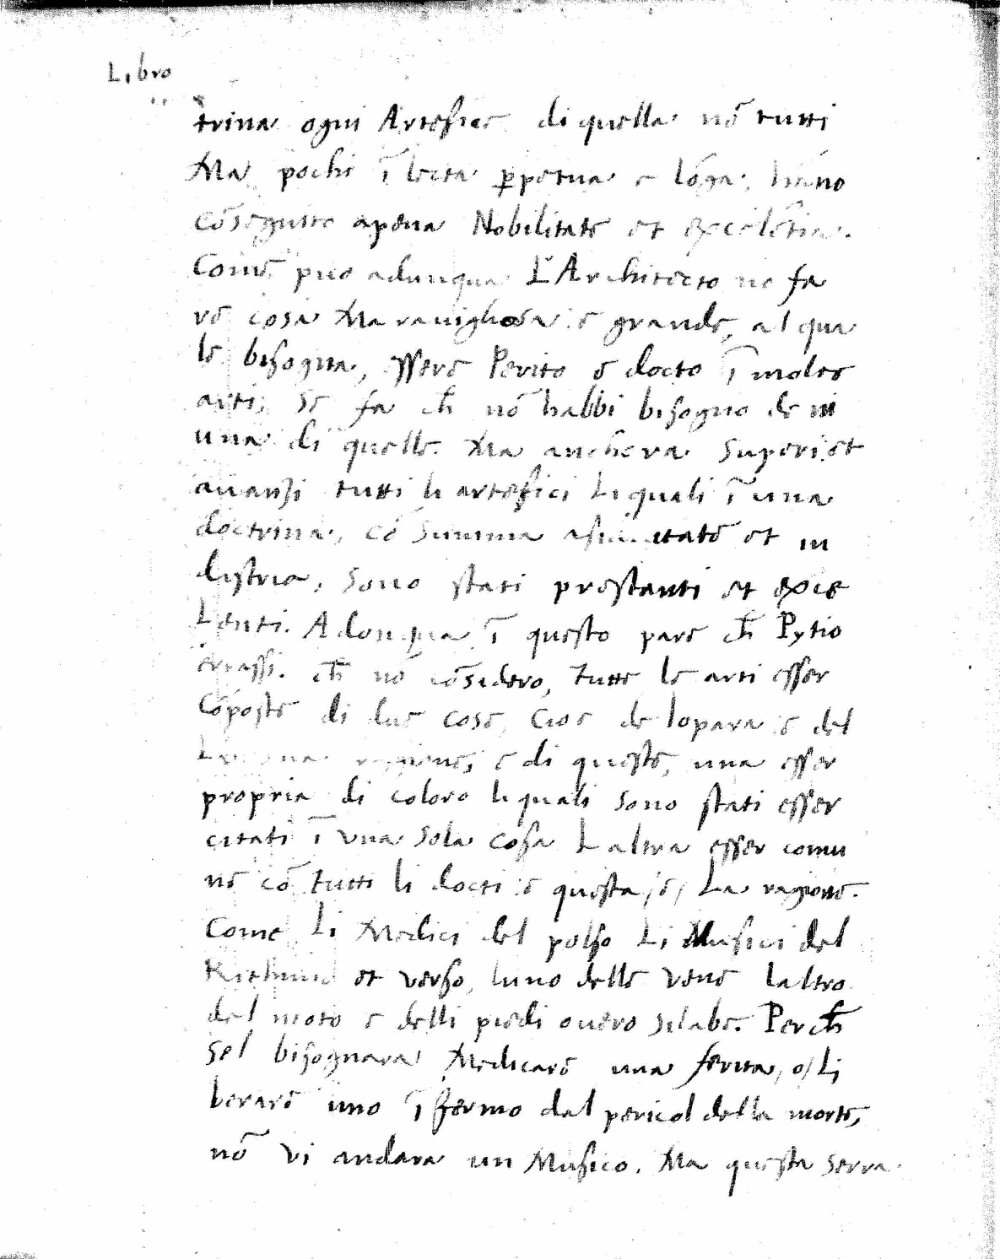 Libro
trina ogni Artefice di quella nō tutti
Ma pochi ī lecta ꝑpetua e lōga, hāno
cōseguite apena Nobilitate et excelētia.
Come puo adunqua L'Architecto ne fa
re cosa Maravigliosa e grande, al qua
le bisogna, essere Perito e docto ī molte
arti, se fa cħ nō habbi bisogno de ni
una di quelle. Ma anchora Superi et
avanzi tutti li artefici Li quali ī una
doctrina, cō Summa et in
dustria, sono stati prestanti et exce
Lenti. Adonqua ī questo pare cħ Pytio
errassi. cħ nō cōsidero, tutte le arti esser
Cōposte di due cose, Cioe de lopara e del
La sua ragione, e di queste, una esser
propria di coloro li quali sono stati esser
citati ī una sola cosa Laltra esser comu
ne cō tutti li docti e questa /e/ La ragione.
Come Li Medici del polso Li Musici del
Rithmo et verso, luno delle vene laltro
del moto e delli piedi overo silabe. Percħ
sel bisognara Medicare una ferita, o/ Li
berare uno īfermo dal pericol della morte,
nō vi andara un Musico. Ma questa serra